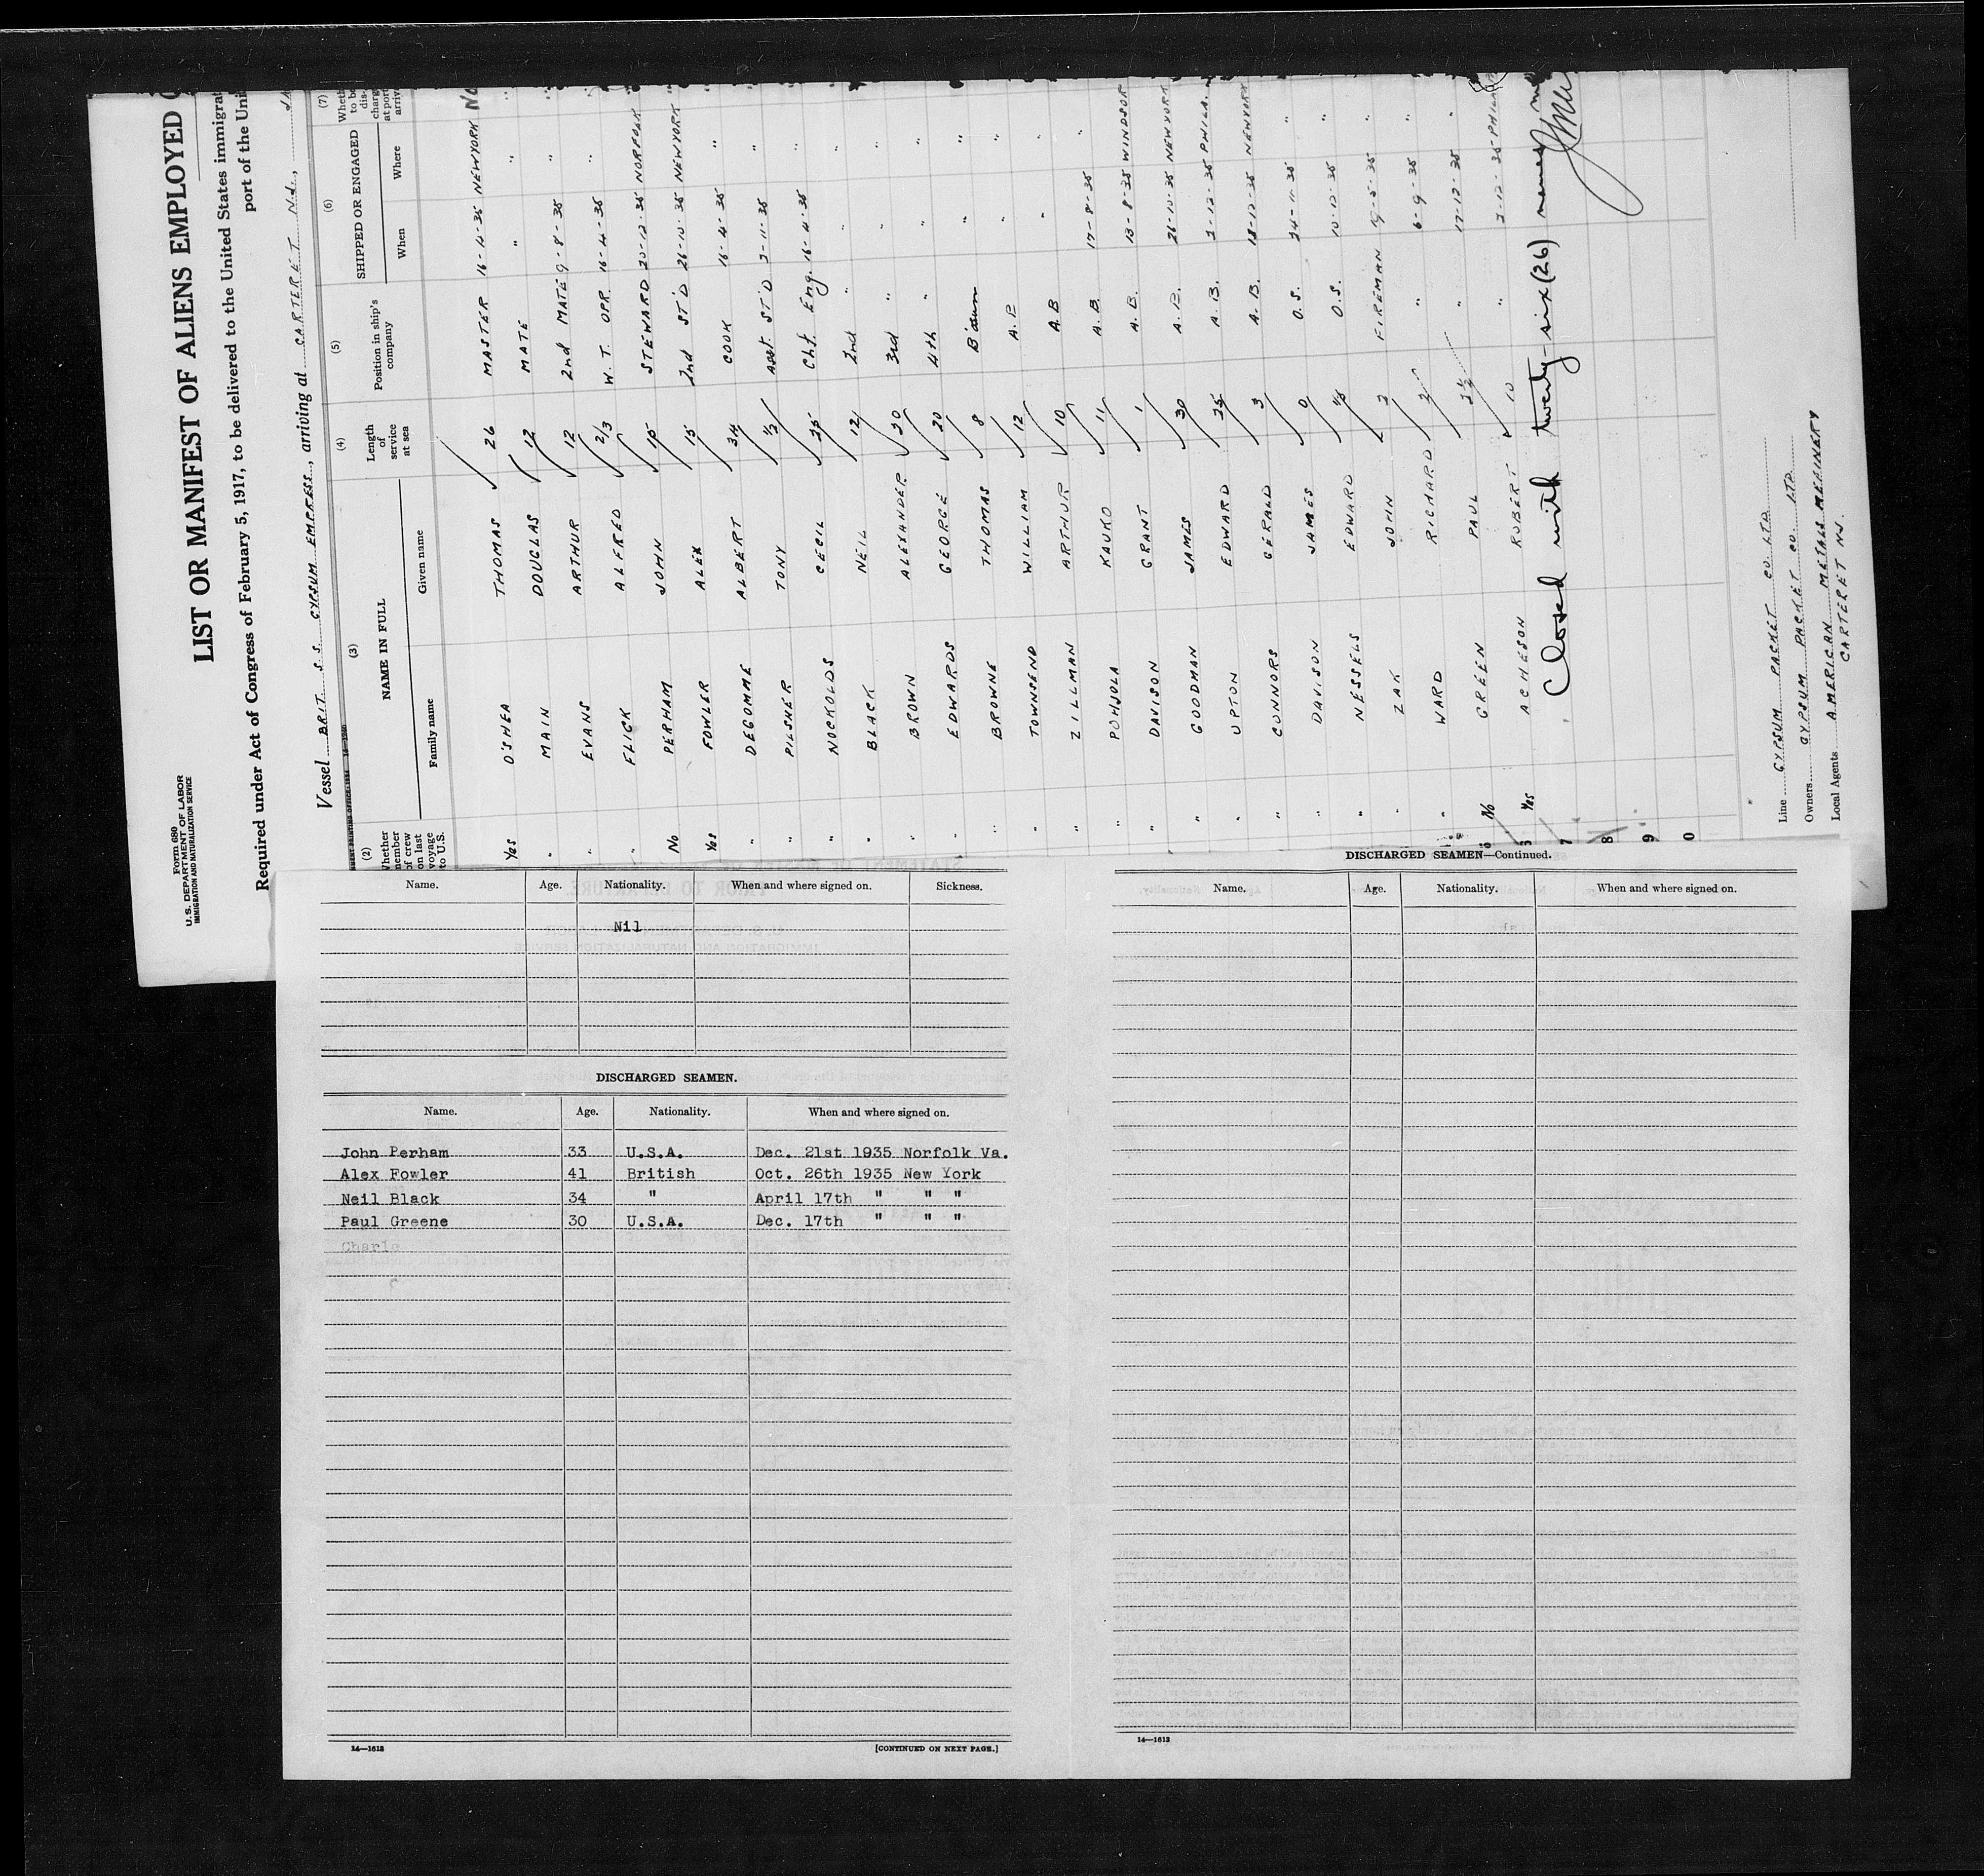 Form 680
U. S. DEPARTMENT OF LABOR
IMMIGRATION AND NATURALIZATION SERVICE
LIST OR MANIFEST OF ALIENS EMPLOYED
Required under Act of Congress of February 5, 1917, to be delivered to the United States immigrat
port of the Uni
Vessel BRIT. S.S. GYPSUM EMPRESS, arriving at CARTERET N.J.,
(2) (3) (4) (5) (6) (7)
Whether member of crew on last voyage to U.S. NAME IN FULL Length of service at sea Position in ship's company SHIPPED OR ENGAGED Wheth to be dis- charg at port arriva
Family name Given name When Where
Yes O'SHEA THOMAS 26 MASTER 16-4-35 NEWYORK No
" MAIN DOUGLAS 12 MATE " " "
" EVANS ARTHUR 12 2nd MATE 9-8-35 " "
" FLICK ALFRED 2/3 W.T. OPR. 16-4-35 "
No PERHAM JOHN 15 STEWARD 20-12-35 NORFOLK
Yes FOWLER ALEX 15 2nd ST'D 26-10-35 NEWYORK "
" DEGOMME ALBERT 34 COOK 16-4-35 "
" PILSHER TONY 1/2 Asst. ST'D 2-11-35 "
" NOCKOLDS CECIL 35 Chf. Eng. 16-4-35 "
" BLACK NEIL 12 2nd " "
" BROWN ALEXANDER 30 3rd " "
" EDWARDS GEORGE 20 4th " "
" BROWNE THOMAS 8 B'osun " "
" TOWNSEND WILLIAM 12 A.B. " "
" ZILLMAN ARTHUR 10 A.B " "
" POHJOLA KAUKO 11 A.B. 17-8-35 "
" DAVISON GRANT 1 A.B. 13-8-35 WINDSOR
" GOODMAN JAMES 30 A.B. 26-10-35 NEWYORK
" UPTON EDWARD 35 A.B. 2-12-35 PHILA.
" CONNORS GERALD 3 A.B. 18-12-35 NEWYORK
" DAVISON JAMES 0 O.S. 24-11-35 "
" NESSELS EDWARD O.S. 10-12-35 "
" ZAK JOHN 2 FIREMAN 19-5-35 "
" WARD RICHARD 2 " 6-9-35 "
No GREEN PAUL " 17-12-35 "
Yes ACHESON ROBERT 10 " 2-12-35 PHILA
Closed with twenty-six (26) names
7
8
9
0
Line GYPSUM PACKET CO. LTD.
Owners GYPSUM PACKET CO. LTD.
Local Agents AMERICAN METALS REFINERY
CARTERET NJ.
Name. Age. Nationality. When and where signed on. Sickness.
Nil
DISCHARGED SEAMEN.
Name. Age. Nationality. When and where signed on.
John Perham 33 U.S.A. Dec. 21st 1935 Norfolk Va.
Alex Fowler 41 British Oct. 26th 1935 New York
Neil Black 34 " April 17th " " "
Paul Greene 30 U.S.A. Dec. 17th " " "
Charle
14—1613
[CONTINUED ON NEXT PAGE.]
DISCHARGED SEAMEN—Continued.
Name. Age. Nationality. When and where signed on.
14—1613